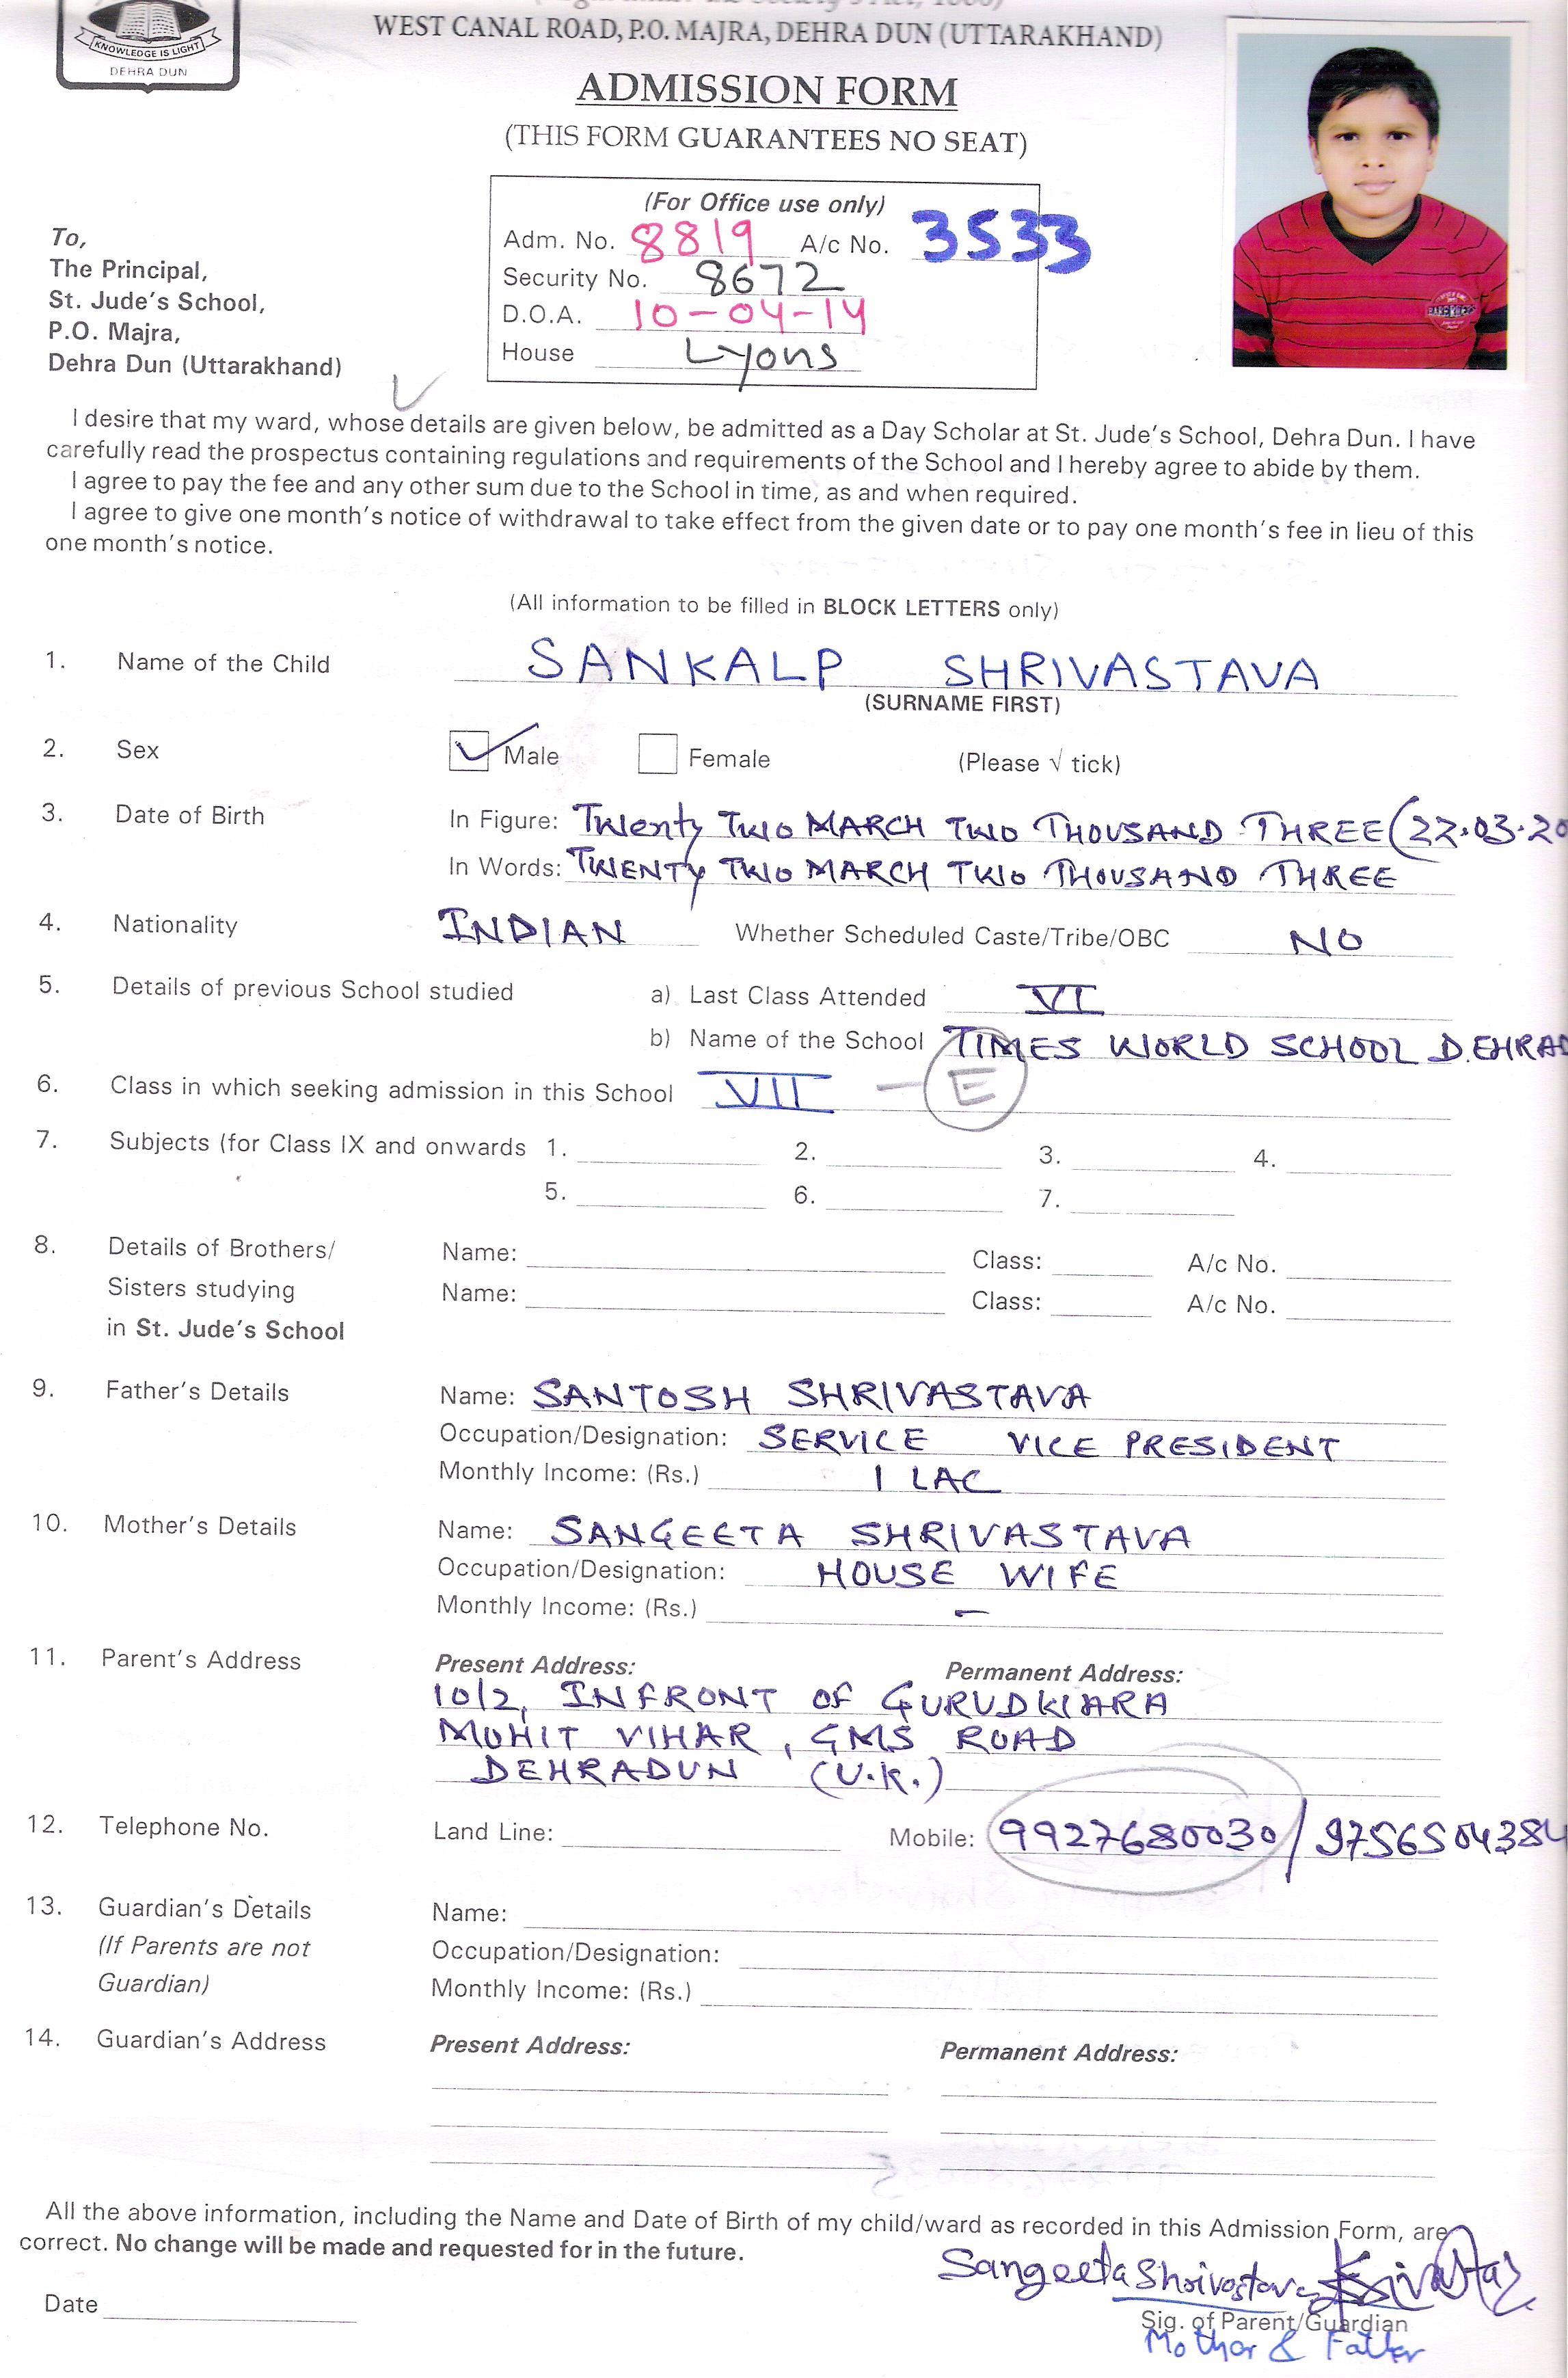 KNOWLEDGE IS LIGHT
DEHRA DUN
WEST CANAL ROAD, P.O. MAJRA, DEHRA DUN (UTTARAKHAND)
ADMISSION FORM
(THIS FORM GUARANTEES NO SEAT)
(For Office use only)
Adm. No. 8819 A/c No. 3533
Security No. 8672
D.O.A. 10-04-14
House Lyons
To,
The Principal,
St. Jude's School,
P.O. Majra,
Dehra Dun (Uttarakhand)
I desire that my ward, whose details are given below, be admitted as a Day Scholar at St. Jude's School, Dehra Dun. I have
carefully read the prospectus containing regulations and requirements of the School and I hereby agree to abide by them.
I agree to pay the fee and any other sum due to the School in time, as and when required.
I agree to give one month's notice of withdrawal to take effect from the given date or to pay one month's fee in lieu of this
one month's notice.
(All information to be filled in BLOCK LETTERS only)
1. Name of the Child SANKALP SHRIVASTAVA
(SURNAME FIRST)
2. Sex ✓ Male Female (Please √ tick)
3. Date of Birth In Figure: Twenty TWO MARCH TWO THOUSAND THREE (22.03.20
In Words: TWENTY TWO MARCH TWO THOUSAND THREE
4. Nationality INDIAN Whether Scheduled Caste/Tribe/OBC NO
5. Details of previous School studied a) Last Class Attended VI
b) Name of the School TIMES WORLD SCHOOL DEHRAD
6. Class in which seeking admission in this School VII - E
7. Subjects (for Class IX and onwards 1. 2. 3. 4.
5. 6. 7.
8. Details of Brothers/ Name: Class: A/c No.
Sisters studying Name: Class: A/c No.
in St. Jude's School
9. Father's Details Name: SANTOSH SHRIVASTAVA
Occupation/Designation: SERVICE VICE PRESIDENT
Monthly Income: (Rs.) 1 LAC
10. Mother's Details Name: SANGEETA SHRIVASTAVA
Occupation/Designation: HOUSE WIFE
Monthly Income: (Rs.) -
11. Parent's Address Present Address: Permanent Address:
10/2, INFRONT OF GURUDWARA
MOHIT VIHAR, GMS ROAD
DEHRADUN (U.K.)
12. Telephone No. Land Line: Mobile: 9927680030 / 9756504384
13. Guardian's Details Name:
(If Parents are not Occupation/Designation:
Guardian) Monthly Income: (Rs.)
14. Guardian's Address Present Address: Permanent Address:
All the above information, including the Name and Date of Birth of my child/ward as recorded in this Admission Form, are
correct. No change will be made and requested for in the future.
Sangeeta Shrivastava
Date Sig. of Parent/Guardian
Mother & Father